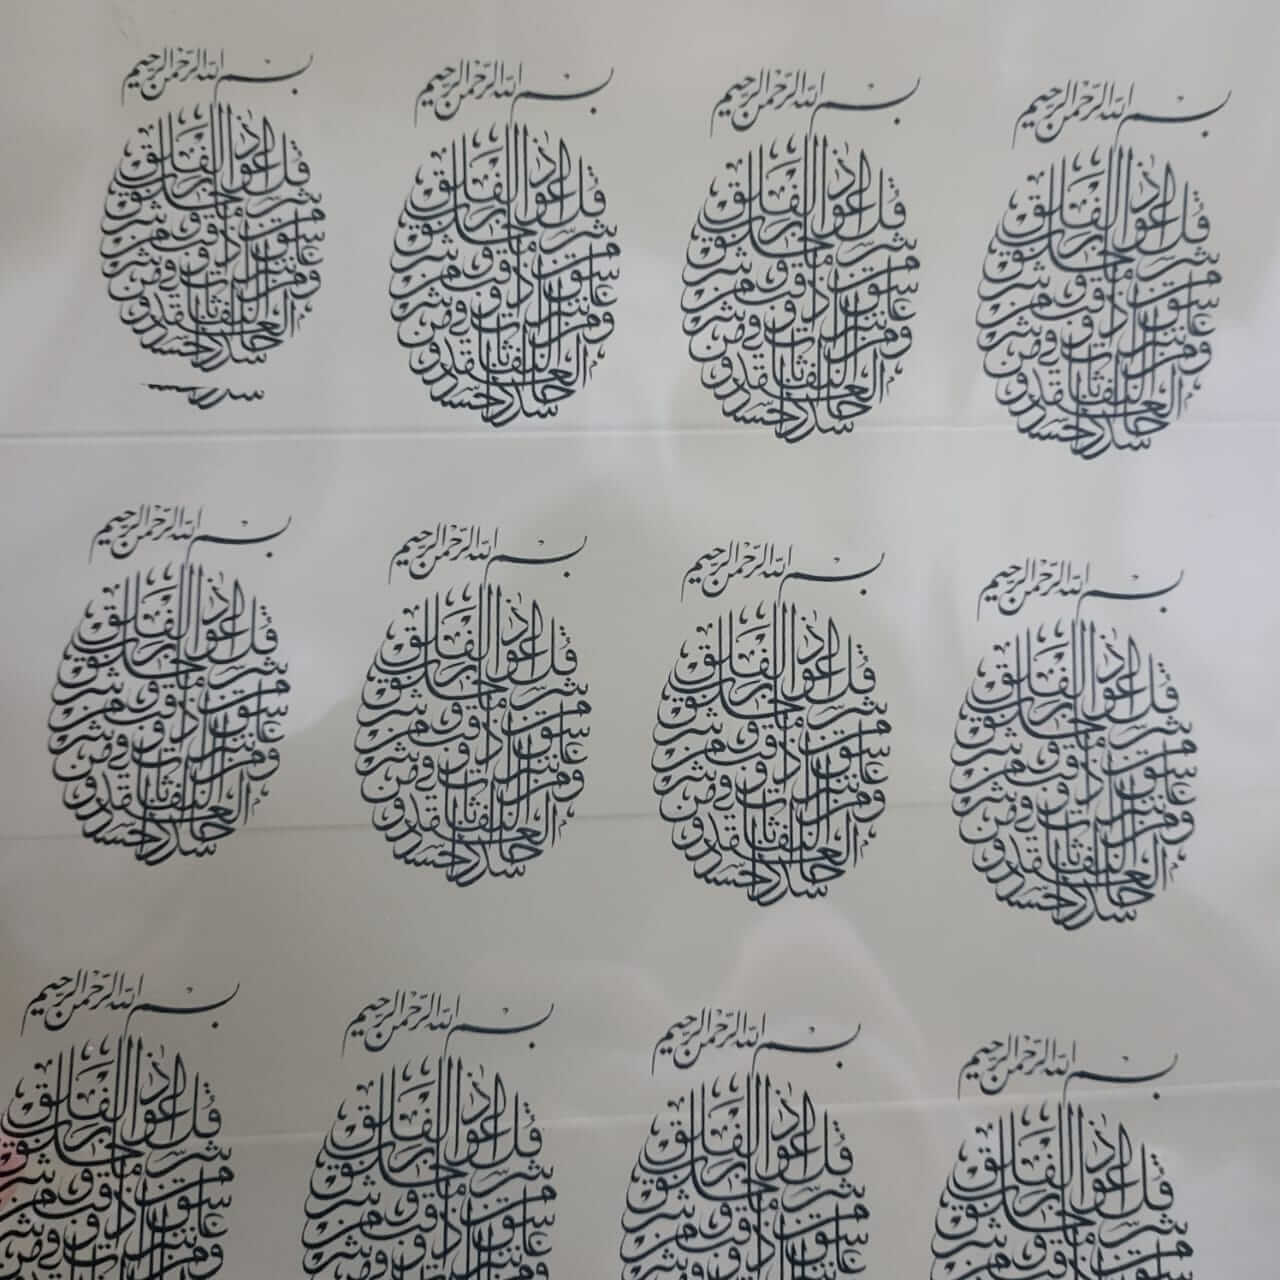 بسم الله الرحمن الرحيم
قل أعوذ برب الفلق من شر ما خلق ومن شر غاسق إذا وقب ومن شر النفاثات في العقد ومن شر حاسد إذا حسد
بسم الله الرحمن الرحيم
قل أعوذ برب الفلق من شر ما خلق ومن شر غاسق إذا وقب ومن شر النفاثات في العقد ومن شر حاسد إذا حسد
بسم الله الرحمن الرحيم
قل أعوذ برب الفلق من شر ما خلق ومن شر غاسق إذا وقب ومن شر النفاثات في العقد ومن شر حاسد إذا حسد
بسم الله الرحمن الرحيم
قل أعوذ برب الفلق من شر ما خلق ومن شر غاسق إذا وقب ومن شر النفاثات في العقد ومن شر حاسد إذا حسد
بسم الله الرحمن الرحيم
قل أعوذ برب الفلق من شر ما خلق ومن شر غاسق إذا وقب ومن شر النفاثات في العقد ومن شر حاسد إذا حسد
بسم الله الرحمن الرحيم
قل أعوذ برب الفلق من شر ما خلق ومن شر غاسق إذا وقب ومن شر النفاثات في العقد ومن شر حاسد إذا حسد
بسم الله الرحمن الرحيم
قل أعوذ برب الفلق من شر ما خلق ومن شر غاسق إذا وقب ومن شر النفاثات في العقد ومن شر حاسد إذا حسد
بسم الله الرحمن الرحيم
قل أعوذ برب الفلق من شر ما خلق ومن شر غاسق إذا وقب ومن شر النفاثات في العقد ومن شر حاسد إذا حسد
بسم الله الرحمن الرحيم
قل أعوذ برب الفلق من شر ما خلق ومن شر غاسق إذا وقب
بسم الله الرحمن الرحيم
قل أعوذ برب الفلق من شر ما خلق ومن شر غاسق إذا وقب
بسم الله الرحمن الرحيم
قل أعوذ برب الفلق من شر ما خلق ومن شر غاسق إذا وقب
بسم الله الرحمن الرحيم
قل أعوذ برب الفلق من شر ما خلق